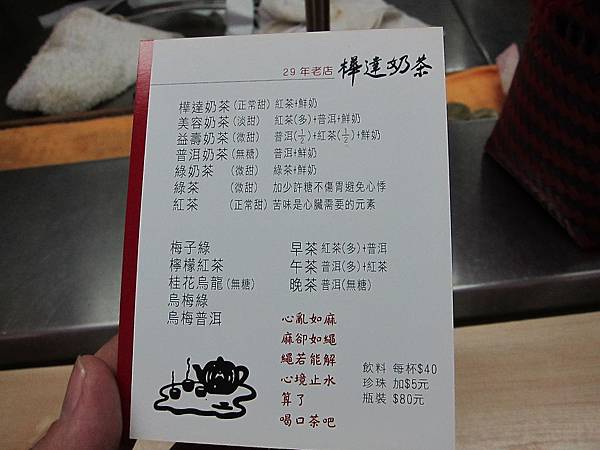 29年老店 樺達奶茶
樺達奶茶(正常甜) 紅茶+鮮奶
美容奶茶(淡甜) 紅茶(多)+普洱+鮮奶
益壽奶茶(微甜) 普洱(½)+紅茶(½)+鮮奶
普洱奶茶(無糖) 普洱+鮮奶
綠奶茶 (微甜) 綠茶+鮮奶
綠茶 (微甜) 加少許糖不傷胃避免心悸
紅茶 (正常甜) 苦味是心臟需要的元素
梅子綠
檸檬紅茶
桂花烏龍(無糖)
烏梅綠
烏梅普洱
早茶 紅茶(多)+普洱
午茶 普洱(多)+紅茶
晚茶 普洱(無糖)
心亂如麻
麻卻如繩
繩若能解
心境止水
算了
喝口茶吧
飲料 每杯$40
珍珠 加$5元
瓶裝 $80元